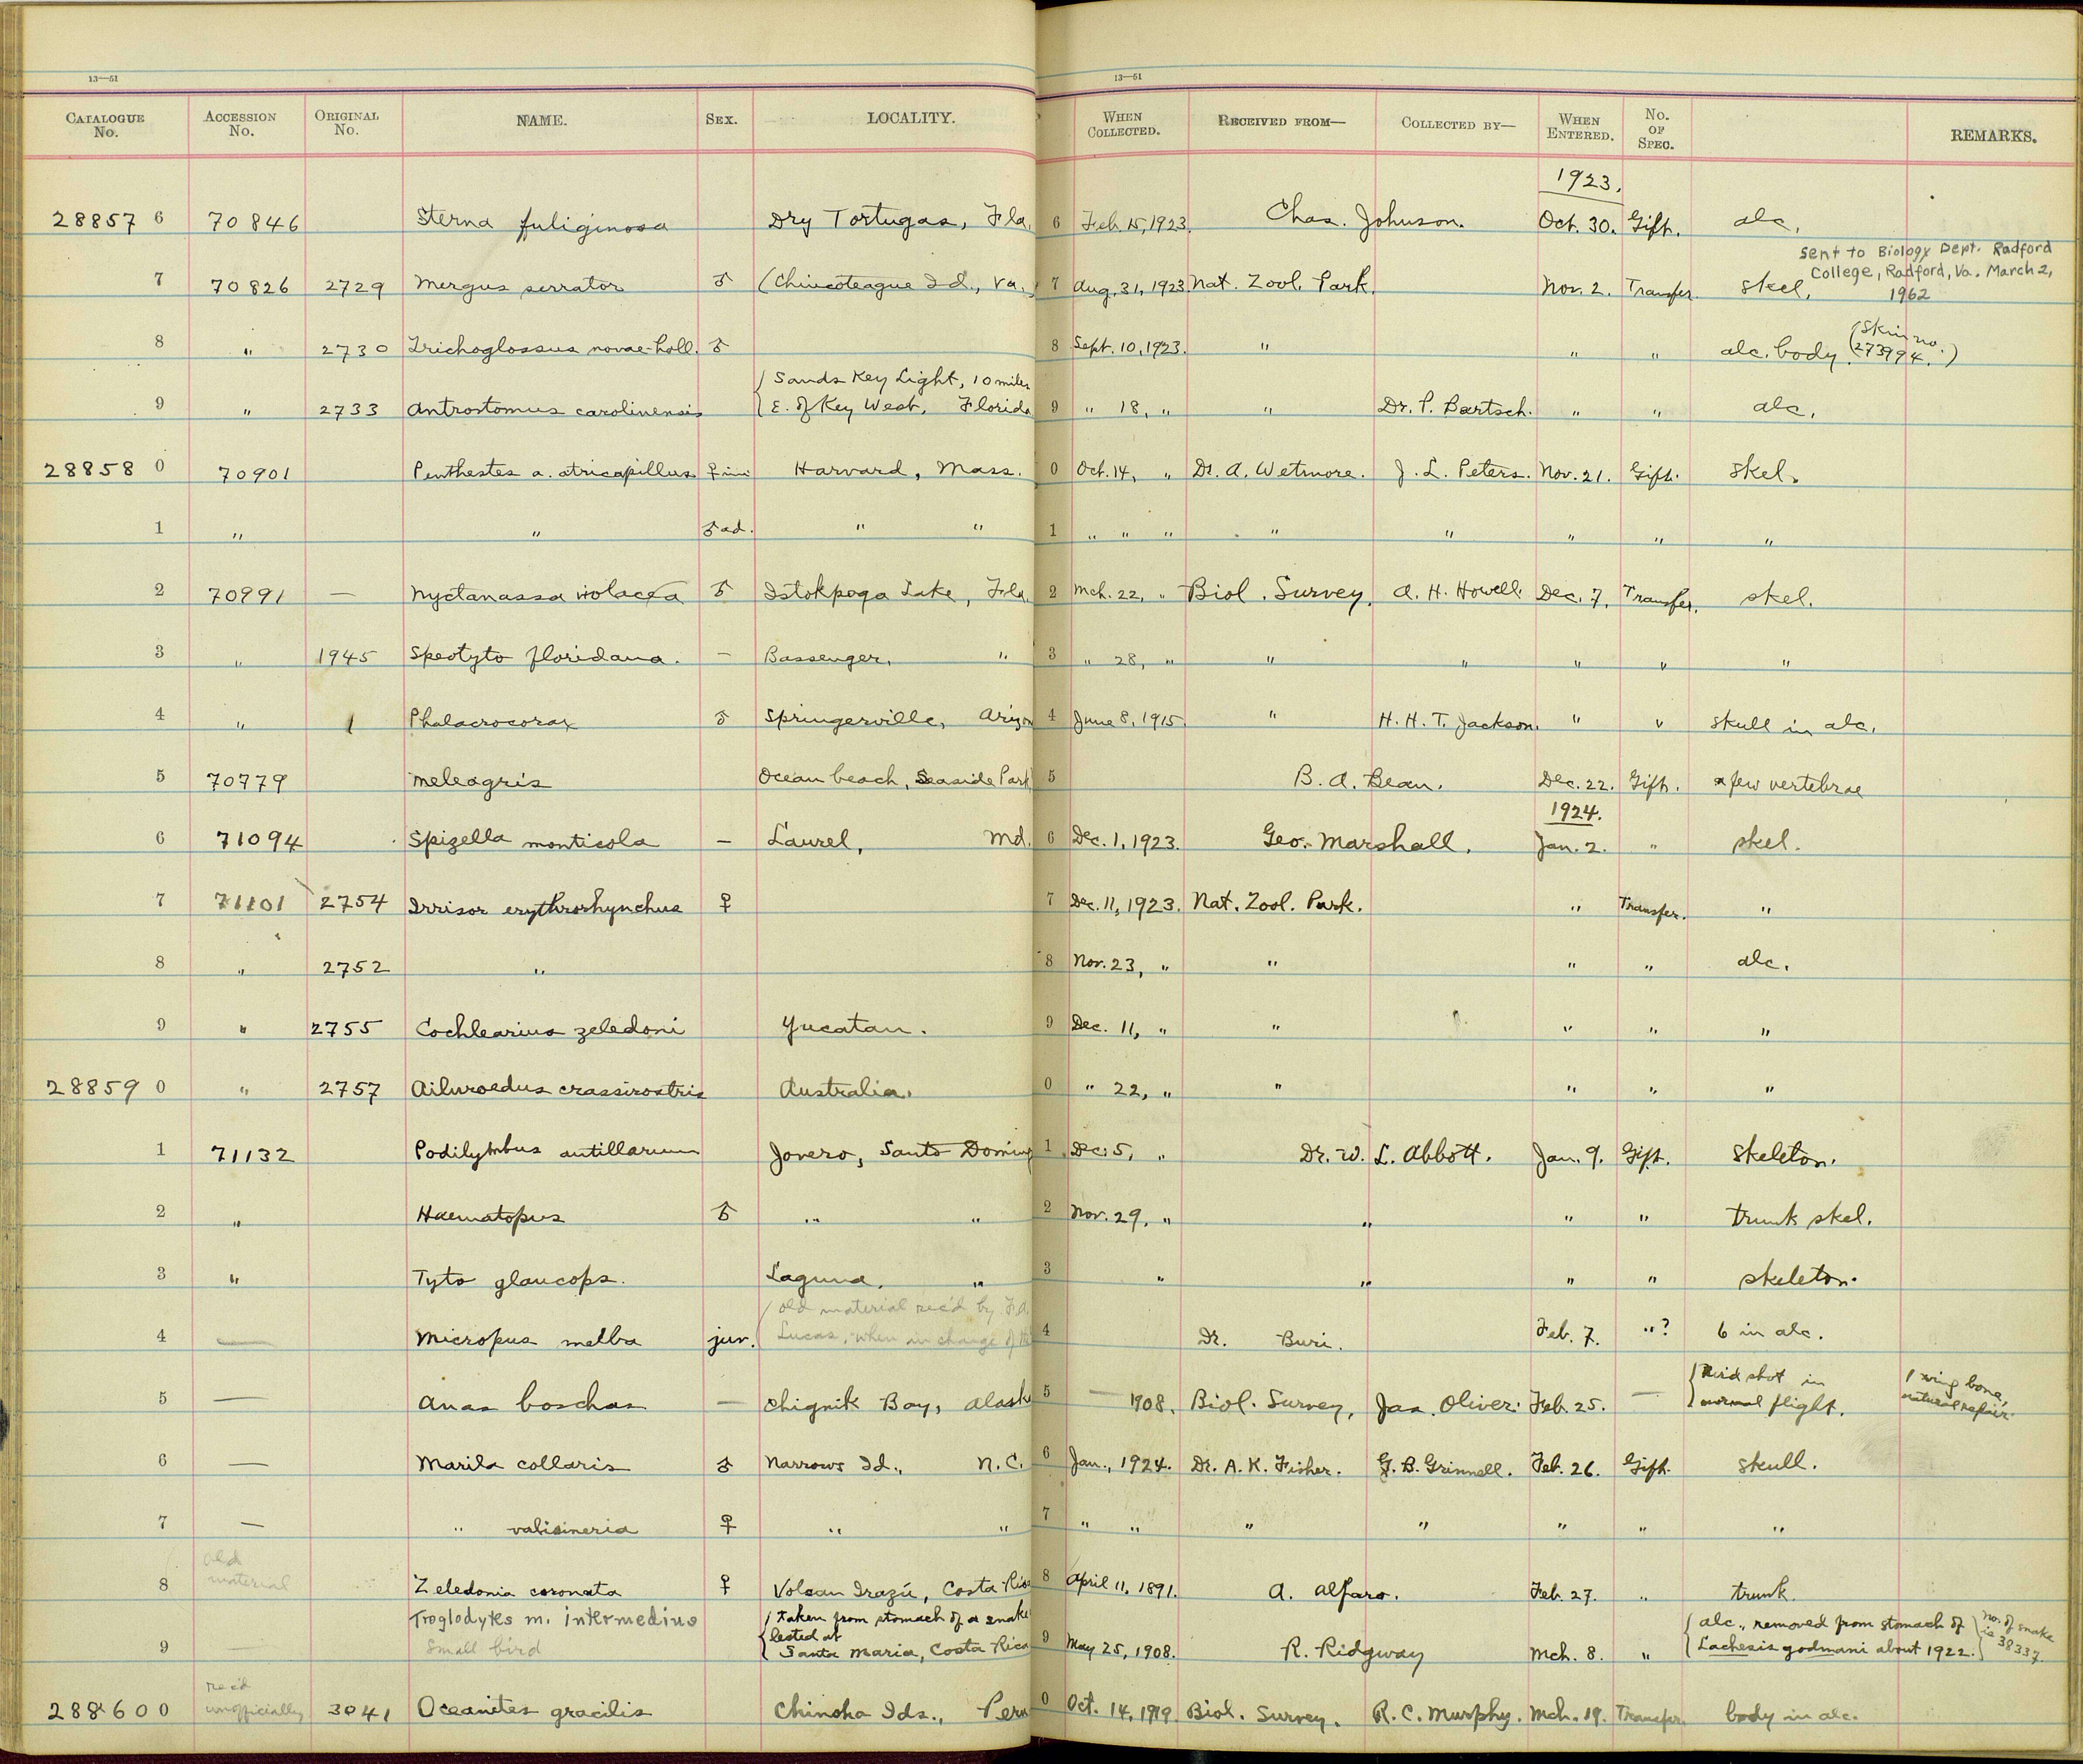 13—51 13—51
CATALOGUE No. ACCESSION No. ORIGINAL No. NAME. SEX. LOCALITY. WHEN COLLECTED. RECEIVED FROM— COLLECTED BY— WHEN ENTERED. No. OF SPEC. REMARKS.
1923.
28857 6 70846 Sterna fuliginosa Dry Tortugas, Fla. 6 Feb. 15, 1923. Chas. Johnson. Oct. 30. Gift. alc.
Sent to Biology Dept. Radford
College, Radford, Va. March 2,
1962
7 70826 2729 Mergus serrator ♂ (Chincoteague Id., Va.) 7 Aug. 31, 1923 Nat. Zool. Park. Nov. 2. Transfer. skel.
8 " 2730 Trichoglossus novae-holl. ♂ 8 Sept. 10, 1923. " " " alc. body (Skin no. 273994.)
{ Sands Key Light, 10 miles
9 " 2733 Antrostomus carolinensis { E. of Key West, Florida 9 " 18, " " Dr. P. Bartsch. " " alc.
28858 0 70901 Penthestes a. atricapillus ♀ im Harvard, Mass. 0 Oct. 14, " Dr. A. Wetmore. J. L. Peters. Nov. 21. Gift. skel.
1 " " ♂ ad. " " 1 " " " " " " " "
2 70991 — Nyctanassa violacea ♂ Istokpoga Lake, Fla. 2 Mch. 22, " Biol. Survey. A. H. Howell. Dec. 7. Transfer. skel.
3 " 1945 Speotyto floridana. — Bassenger, " 3 " 28, " " " " " "
4 " 1 Phalacrocorax ♂ Springerville, Arizon 4 June 8, 1915. " H. H. T. Jackson. " " skull in alc.
5 70779 Meleagris Ocean beach, Seaside Park 5 B. A. Bean. Dec. 22. Gift. a few vertebrae
1924.
6 71094 Spizella monticola — Laurel, Md. 6 Dec. 1, 1923. Geo. Marshall. Jan. 2. " skel.
7 71101 2754 Irrisor erythrorhynchus ♀ 7 Dec. 11, 1923. Nat. Zool. Park. " Transfer. "
8 " 2752 " 8 Nov. 23, " " " " alc.
9 " 2755 Cochlearius zeledoni Yucatan. 9 Dec. 11, " " " " "
28859 0 " 2757 Ailuroedus crassirostris Australia. 0 " 22, " " " " "
1 71132 Podilymbus antillarum Jovero, Santo Doming 1 Dec. 5, " Dr. W. L. Abbott. Jan. 9. Gift. skeleton.
2 " Haematopus ♂ " " 2 Nov. 29, " " " " trunk skel.
3 " Tyto glaucops. Laguna, " 3 " " " " skeleton.
( old material rec'd by F. A.
4 — Micropus melba juv. Lucas, when in charge of th 4 Dr. Buri. Feb. 7. "? 6 in alc.
5 — Anas boschas — Chignik Bay, Alaska 5 — 1908. Biol. Survey, Jas. Oliver. Feb. 25. — { Bird shot in normal flight. 1 wing bone, natural repair.
6 — Marila collaris ♂ Narrows Id., N.C. 6 Jan., 1924. Dr. A. K. Fisher. G. B. Grinnell. Feb. 26. Gift. skull.
7 — " valisineria ♀ " " 7 " " " " " " "
old
material
8 Zeledonia coronata ♀ Volcan Irazú, Costa Rica 8 April 11, 1891. A. Alfaro. Feb. 27. " trunk.
Troglodytes m. intermedius { taken from stomach of a snake
9 — Small bird lected at Santa Maria, Costa Rica 9 May 25, 1908. R. Ridgway Mch. 8. " { alc., removed from stomach of Lachesis godmani about 1922. } no. of snake is 38337.
rec'd
unofficially
288600 3041 Oceanites gracilis Chincha Ids., Peru 0 Oct. 14, 1919. Biol. Survey. R. C. Murphy. Mch. 19. Transfer. body in alc.